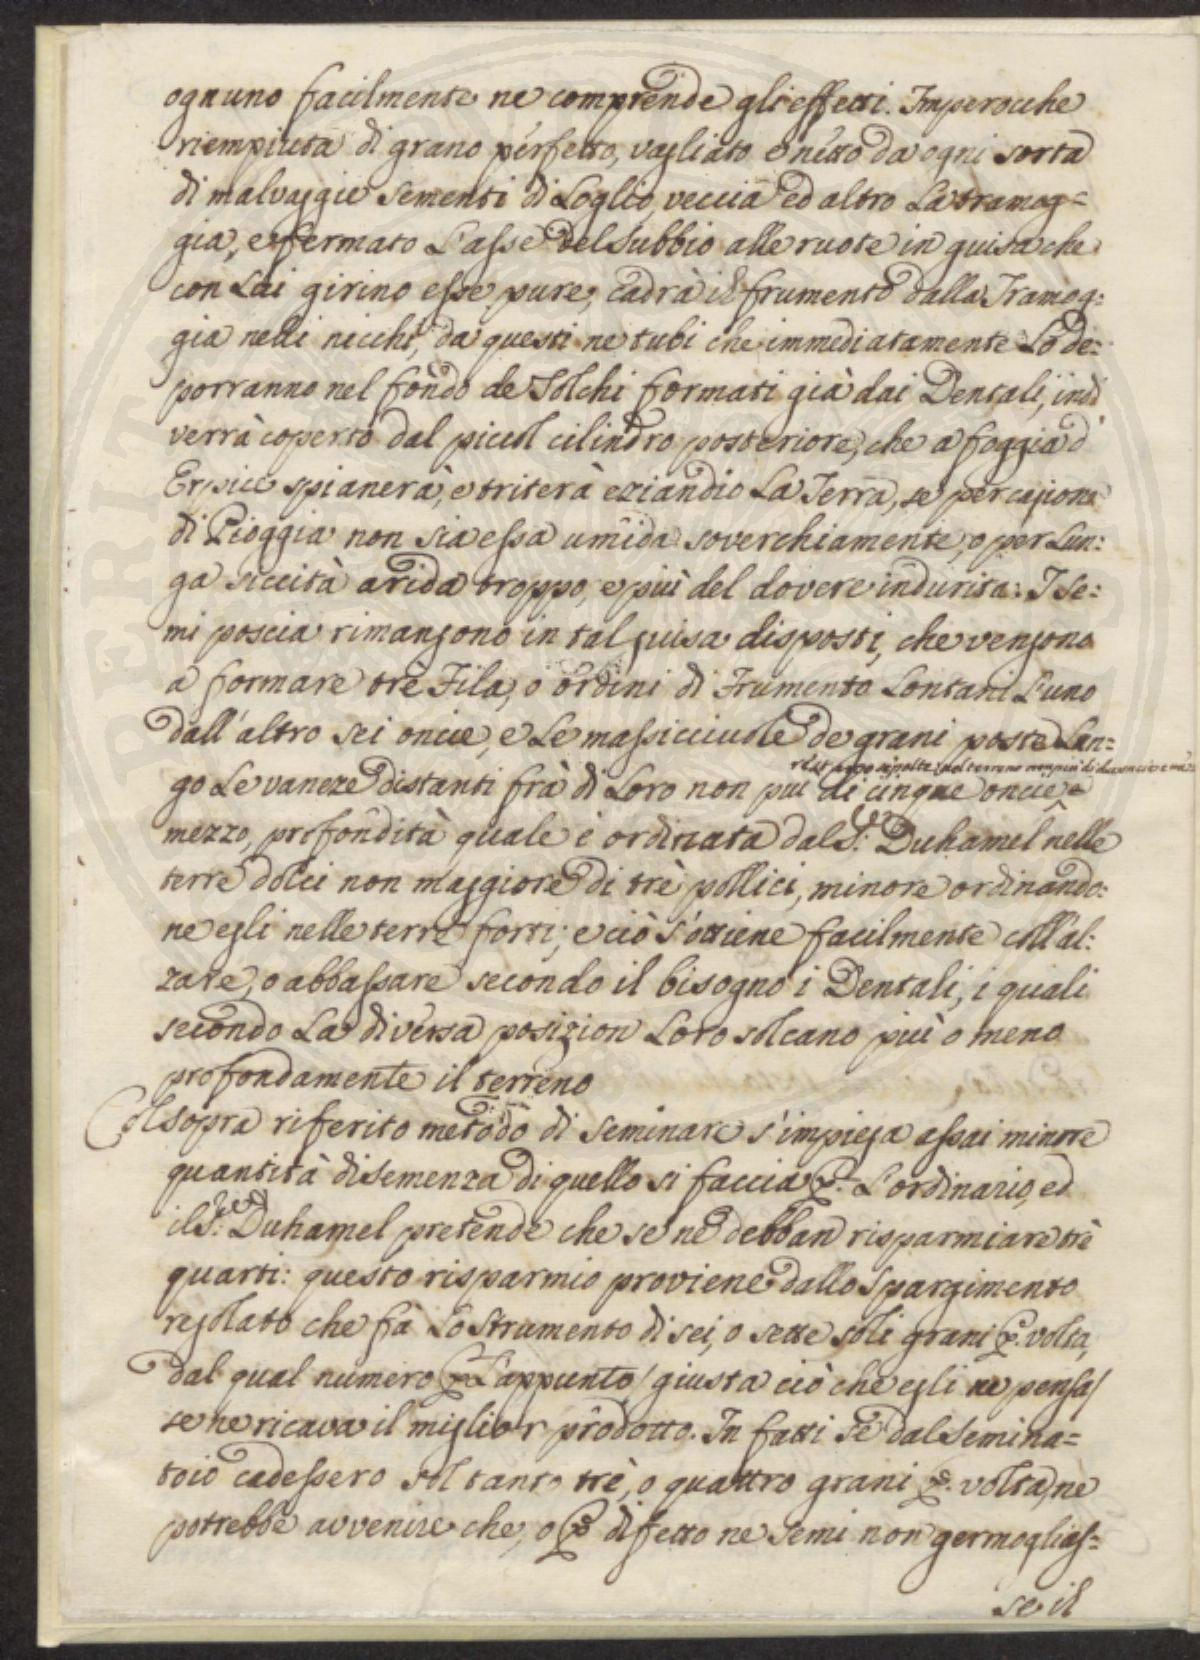 ognuno facilmente ne comprende gli effetti. Imperocche
riempiuta di grano perfetto, vagliato e netto da ogni sorta
di malvaggie sementi di Loglio, veccia ed altro La tramog=
gia, e fermato L'asse del Subbio alle ruote in guisa che
con Lui girino esse pure, cadrà il frumento dalla Tramog:
gia nelli nicchi, da questi ne tubi che immediatamente Lo de:
porranno nel fondo de Solchi formati già dai Dentali, indi
verrà coperto dal piccol cilindro posteriore, che a foggia d'
Erpice spianerà, e triterà eziandio La Terra, se per cagione
di Pioggia non sia essa umida soverchiamente, o per Lun:
ga siccità arida troppo, e più del dovere indurita: I Se:
mi poscia rimangono in tal guisa disposti, che vengono
a formare trè Fila, o ordini di Frumento Lontani L'uno
dall'altro sei oncie, e Le massicciuole de grani poste Lun=
rest anno sipolte nel terreno non più di due oncie e mez:
go Le vaneze distanti frà di Loro non più di cinque oncie e
mezzo, profondità quale è ordinata dal S.r Duhamel nelle
terre dolci non maggiore di trè pollici, minore ordinando:
ne egli nelle terre forti; e ciò s'ottiene facilmente coll'al:
zare, o abbassare secondo il bisogno i Dentali, i quali
secondo La diversa posizion Loro solcano più o meno
profondamente il terreno
Col sopra riferito metodo di Seminare s'impiega assai minore
quantità di Semenza di quello si faccia p. L'ordinario, ed
il S.r Duhamel pretende che se ne debban risparmiare trè
quarti: questo risparmio proviene dallo Spargimento
regolato che fà Lo Strumento di sei, o sette soli grani p. volta,
dal qual numero p. L'appunto / giusta ciò che egli ne pensa /
se ne ricava il miglior prodotto. In fatti se dal Semina=
toio cadessero sol tanto trè, o quattro grani p. volta, ne
potrebbe avvenire che, o p. difetto ne Semi non germoglias=
se il